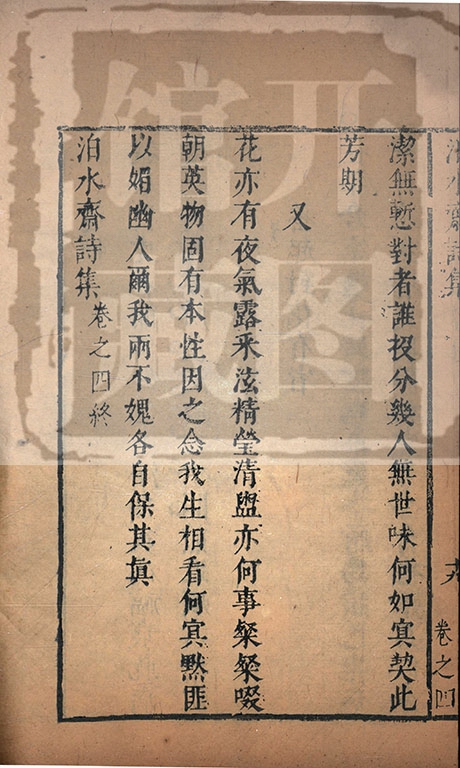 潔無慙對者誰投分幾人無世味何如寅契此
芳期
又
花亦有夜氣露釆泫精瑩清盥亦何事粲粲啜
朝英物固有本性因之念我生相看何寅默匪
以媚幽人爾我兩不媿各自保其眞
泊水齋詩集 卷之四終
泊水齋詩集 卷之四